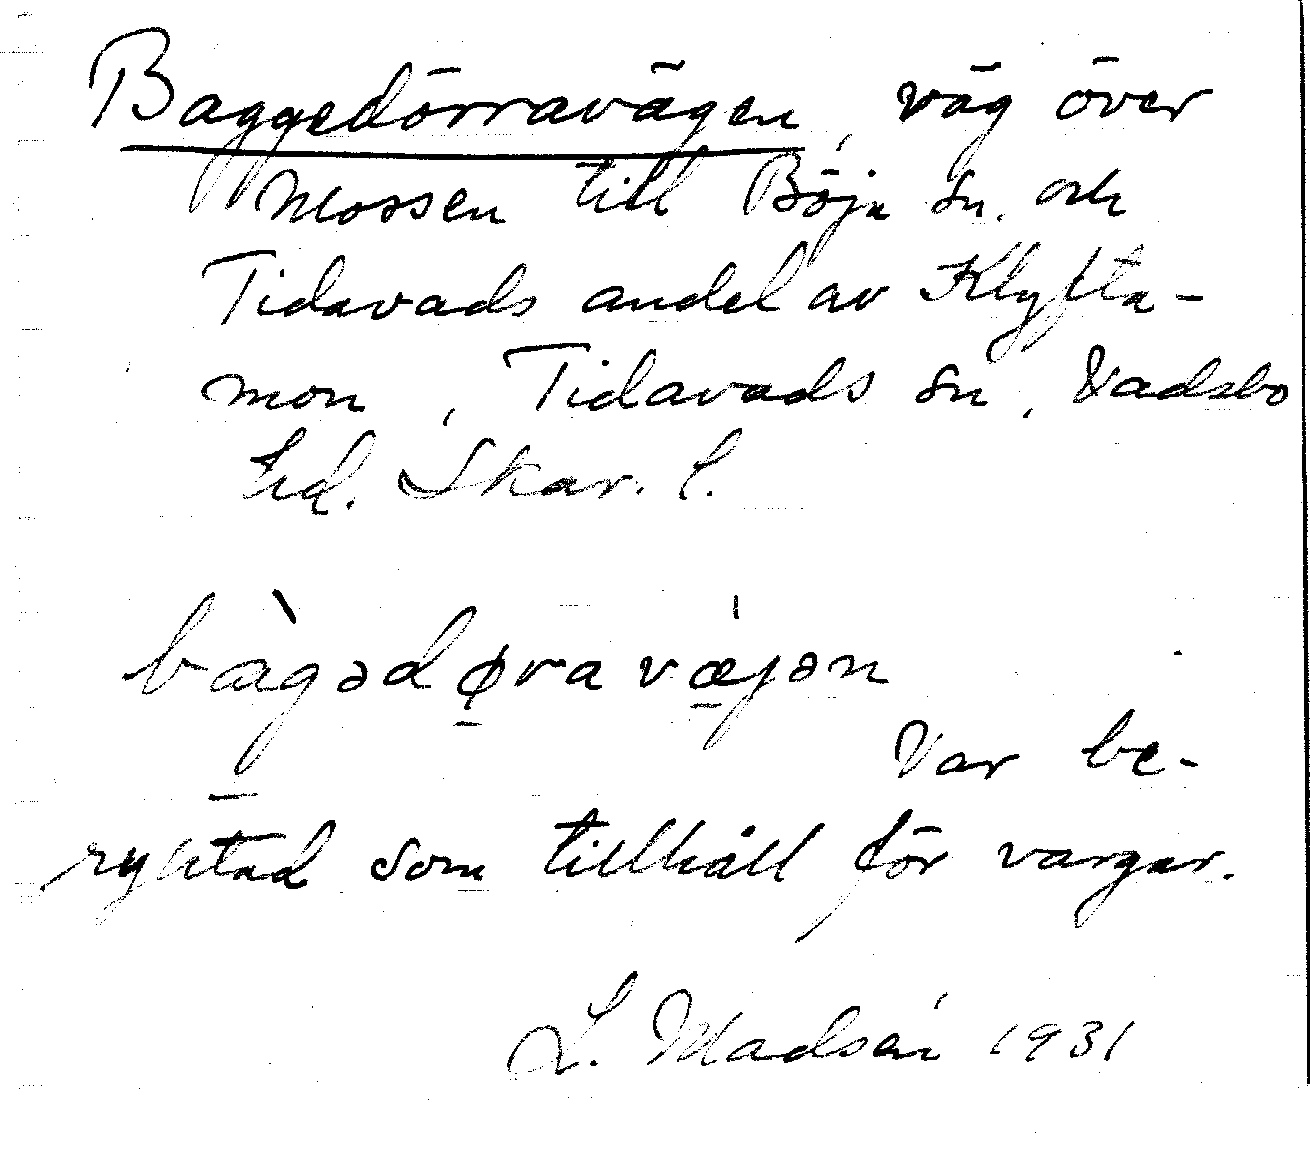 Baggedörravägen, väg över
Mossen till Böja sn. och
Tidavads andel av Klyfta-
mon, Tidavads sn, Vadsbo
hd. Skar. l.
bàgədøravæjən
Var be-
ryktad som tillhåll för vargar.
L. Madsén 1931